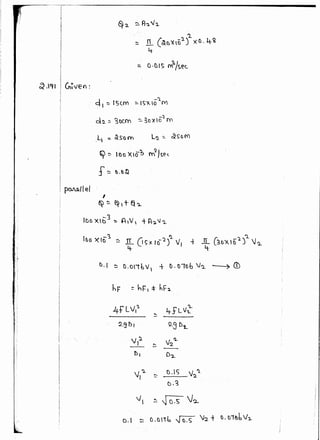 Q2 = A2V2
= π/4 (20×10⁻²)² × 0.48
= 0.015 m³/sec
2.141 Given :
d1 = 15cm = 15×10⁻²m
d2 = 30cm = 30×10⁻²m
L1 = 250m L2 = 250m
Q = 100×10⁻³ m³/sec
f = 0.02
parallel
Q = Q1 + Q2
100×10⁻³ = A1V1 + A2V2
100×10⁻³ = π/4 (15×10⁻²)² V1 + π/4 (30×10⁻²)² V2
0.1 = 0.0176V1 + 0.0706 V2 → ①
hF = hF1 + hF2
4FLV1²/2gD1 = 4FLV2²/2gD2
V1²/D1 = V2²/D2
V1² = 0.15/0.3 V2²
V1 = √0.5 V2
0.1 = 0.0176 √0.5 V2 + 0.0706V2